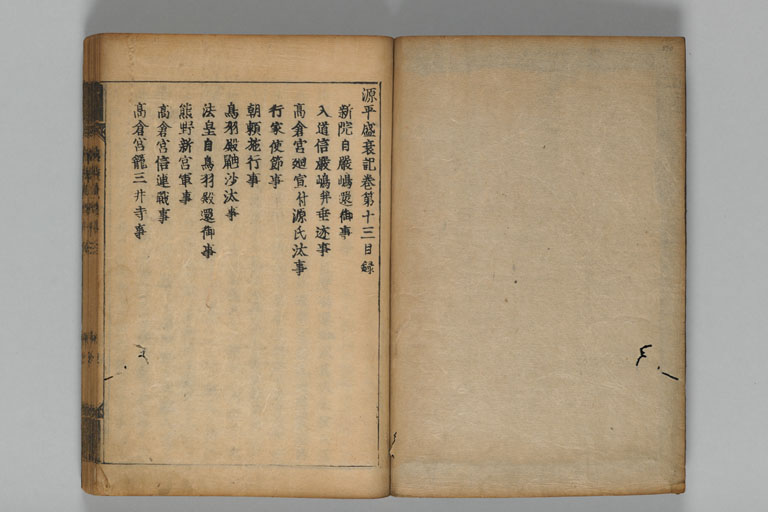 源平盛衰記巻第十三目録
新院自嚴嶋還御事
入道信嚴嶋幷垂迹事
高倉宮廻宣付源氏汰事
行家使節事
頼朝施行事
鳥羽殿鼬沙汰事
法皇自鳥羽殿還御事
熊野新宮軍事
高倉宮信連戰事
高倉宮籠三井寺事